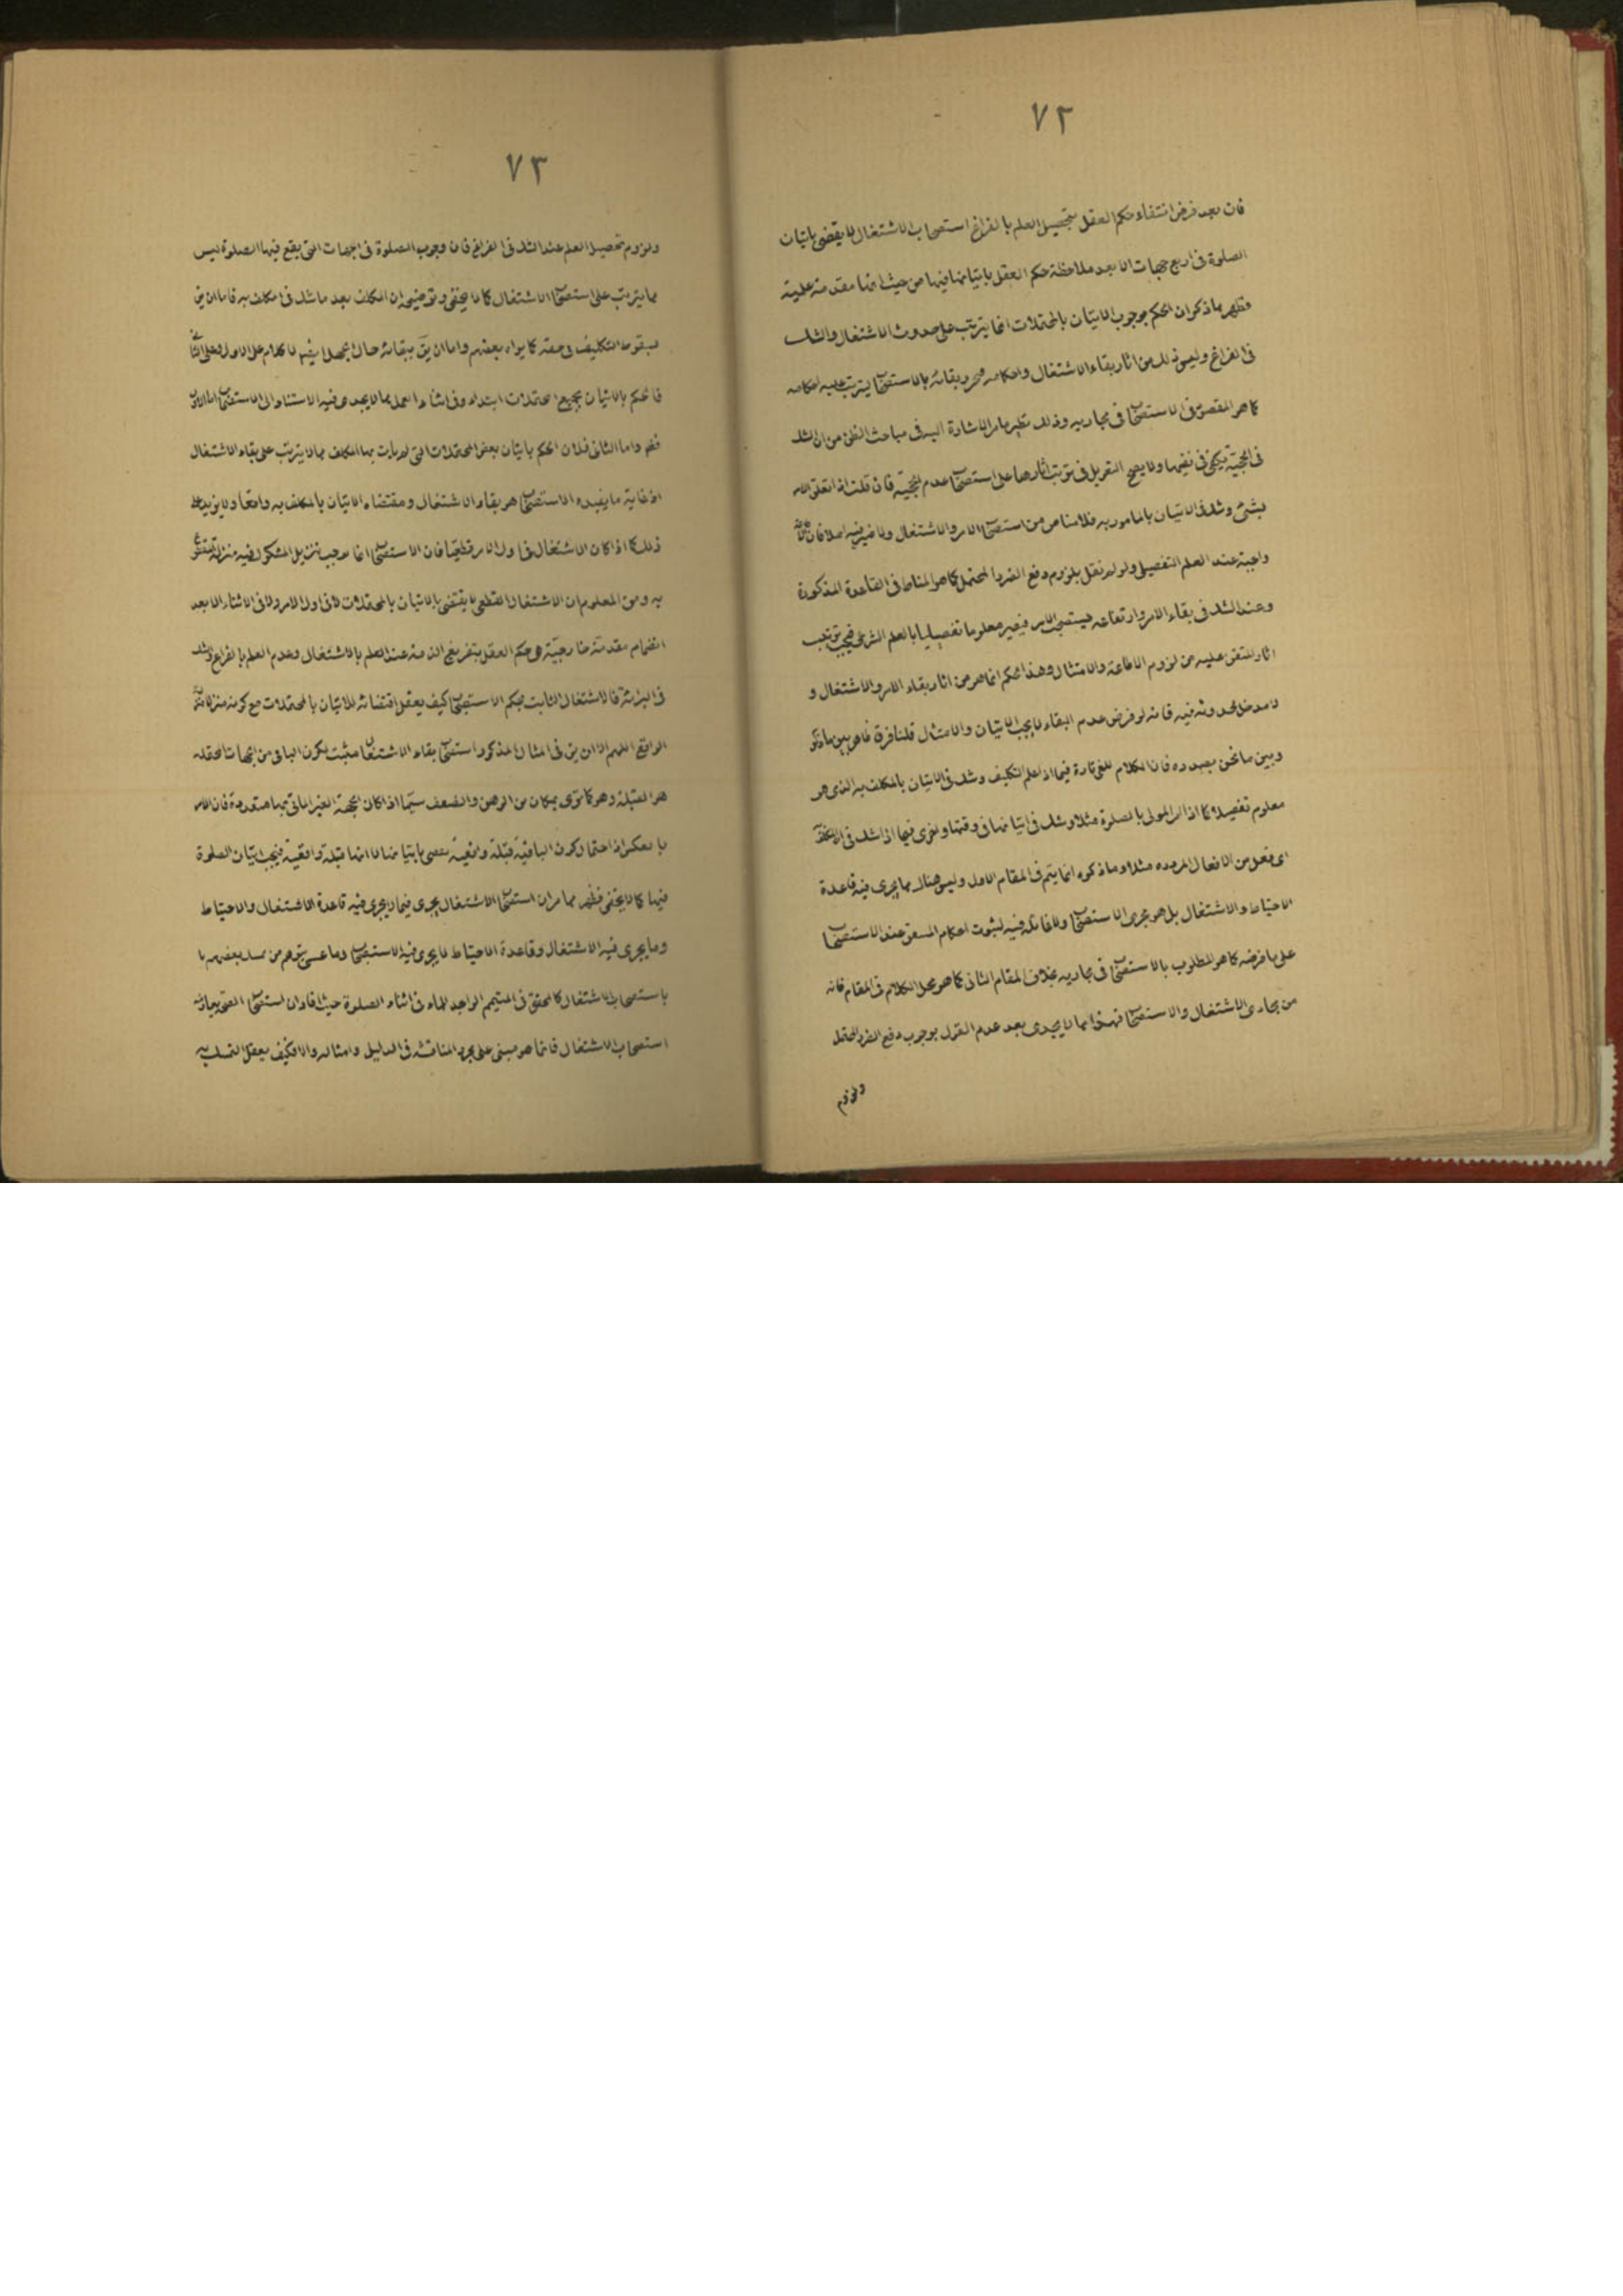 ٧٢
فان بعد فرض انتفاء حكم العقل بتحصيل العلم بالفراغ استصحاب الاشتغال لا يقضى باتيان
الصلوة فى اربع جهات الا بعد ملاحظة حكم العقل باتيانها فيها من حيث انها مقدمة علمية
فظهر مما ذكر ان الحكم بوجوب الاتيان بالمحتملات انما يترتب على حدوث الاشتغال والشك
فى الفراغ وليس ذلك من اثار بقاء الاشتغال واحكامه ومجرد بقائه بالاستصحاب يترتب عليه احكامه
كما هو المقصود فى الاستصحاب فى مجاريه وذلك نظير ما مر الاشارة اليه فى مباحث الظن من ان الشك
فى الحجية يكفى فى نفيها ولا يصح التعويل فى ترتب اثارها على استصحاب عدم الحجية فان قلت اذا تعلق الامر
بشئ وشك فى الاتيان بالمامور به فلا مناص من استصحاب الامر والاشتغال ولا ضير فيه اصلا فان
واجبة عند العلم التفصيلى ولو لم نقل بلزوم دفع الضرر المحتمل كما هو المناط فى القاعدة المذكورة
وعند الشك فى بقاء الامر وارتفاعه فيستصحب الامر فيصير معلوما تفصيليا بالعلم الشرعى فيجب ترتيب
اثار المتيقن عليه من لزوم الاطاعة والامتثال وهذا الحكم انما هو من اثار بقاء الامر والاشتغال و
لا مدخل لحدوثه فيه فانه لو فرض عدم البقاء لا يجب الاتيان والامتثال قلنا فرق ظاهر بين ما ذكر
وبين ما نحن بصدده فان الكلام تارة فيما اذا علم التكليف وشك فى الاتيان بالمكلف به الذى هو
معلوم تفصيلا كما اذا امر المولى بالصلوة مثلا وشك فى اتيانها فى وقتها واخرى فيما اذا شك فى ان المكلف به
اى فعل من الافعال المرددة مثلا وما ذكره انما يتم فى المقام الاول وليس هناك مما يجرى فيه قاعدة
الاحتياط والاشتغال بل هو مجرى الاستصحاب ولا غائلة فيه لثبوت احكام المتيقن عند الاستصحاب
على ما فرضه كما هو المطلوب بالاستصحاب فى مجاريه بخلاف المقام الثانى كما هو محل الكلام فى المقام فانه
من مجارى الاشتغال والاستصحاب فهذا مما لا يجدى بعد عدم القول بوجوب دفع الضرر المحتمل
ولزوم
٧٣
ولزوم تحصيل العلم عند الشك فى الفراغ فان وجوب الصلوة فى الجهات التى يقع فيها الصلوة ليس
مما يترتب على استصحاب الاشتغال كما لا يخفى وتوضيحه ان المكلف بعد ما شك فى المكلف به فاما ان يق
بسقوط التكليف فى حقه كما يراه بعضهم واما ان يق ببقائه حال الجهل ايضا لا كلام على الاول وعلى الثانى
فالحكم بالاتيان بجميع المحتملات ابتداء وفى اثناء العمل مما لا يجدى فيه الاستناد الى الاستصحاب اما الاول
فظهر واما الثانى فلان الحكم باتيان بعض المحتملات التى لم يات بها المكلف مما لا يترتب على بقاء الاشتغال
اذ غاية ما يفيده الاستصحاب هو بقاء الاشتغال ومقتضاه الاتيان بالمكلف به واقعا ولا يزيد على
ذلك كما اذا كان الاشتغال فى اول الامر قطعيا فان الاستصحاب انما يوجب تنزيل المشكوك فيه منزلة المقطوع
به ومن المعلوم ان الاشتغال القطعى لا يقتضى بالاتيان بالمحتملات لا فى اول الامر ولا فى الاثناء الا بعد
انضمام مقدمة خارجية هى حكم العقل بتفريغ الذمة عند العلم بالاشتغال وعدم العلم بالفراغ وشك
فى البرائة فالاشتغال الثابت بحكم الاستصحاب كيف يعقل اقتضائه للاتيان بالمحتملات مع كونه منزلا منزلة
الواقع اللهم الا ان يق فى المثال المذكور استصحاب بقاء الاشتغال مثبت لكون الباقى من الجهات المحتملة
هو القبلة وهو كما ترى بمكان من الوهن والضعف سيما اذا كان الجهة الغير الماتى بها متعددة فان الامر
بالعكس اذ احتمال كون الباقية قبلة واقعية يقضى باتيانها لا انها قبلة واقعية فيجب اتيان الصلوة
فيها كما لا يخفى فظهر مما مر ان استصحاب الاشتغال يجرى فيما لا يجرى فيه قاعدة الاشتغال والاحتياط
وما يجرى فيه الاشتغال وقاعدة الاحتياط لا يجرى فيه الاستصحاب وما عسى يتوهم من تمسك بعضهم
باستصحاب الاشتغال كالمحقق فى المتيمم الواجد للماء فى اثناء الصلوة حيث افاد ان استصحاب الصحة يعارضه
استصحاب الاشتغال فانما هو مبنى على مجرد المناقشة فى الدليل وامثاله والا فكيف يعقل التمسك به